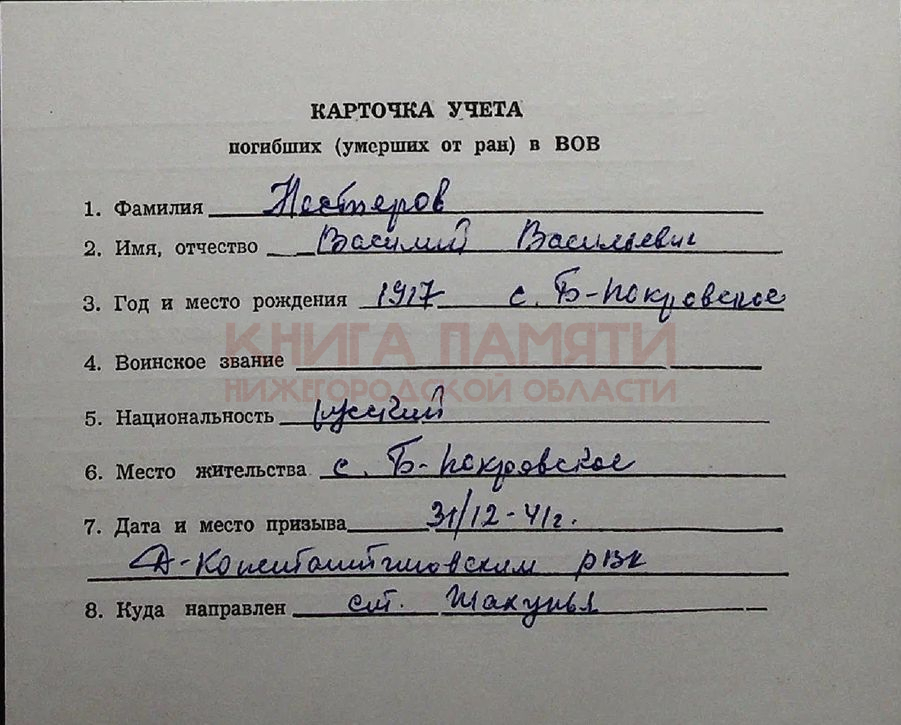 КАРТОЧКА УЧЕТА
погибших (умерших от ран) в ВОВ
1. Фамилия Нестеров
2. Имя, отчество Василий Васильевич
3. Год и место рождения 1917 с. Б-Покровское
КНИГА ПАМЯТИ
4. Воинское звание
НИЖЕГОРОДСКОЙ ОБЛАСТИ
5. Национальность русский
6. Место жительства с. Б-Покровское
7. Дата и место призыва 31/12-41г.
Д-Константиновским РВК
8. Куда направлен ст. Шахунья